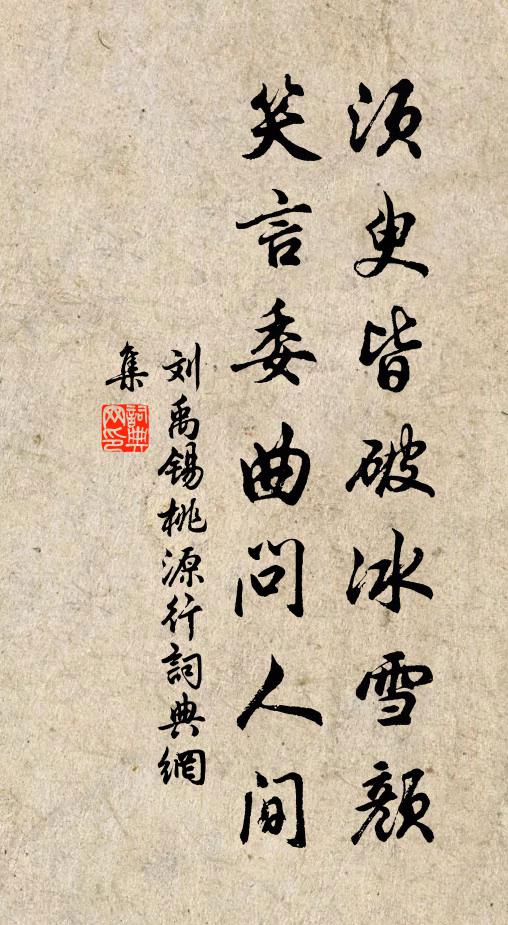 须臾皆破冰雪颜
笑言委曲问人间
刘禹锡桃源行詞典網
集
詞典
网印